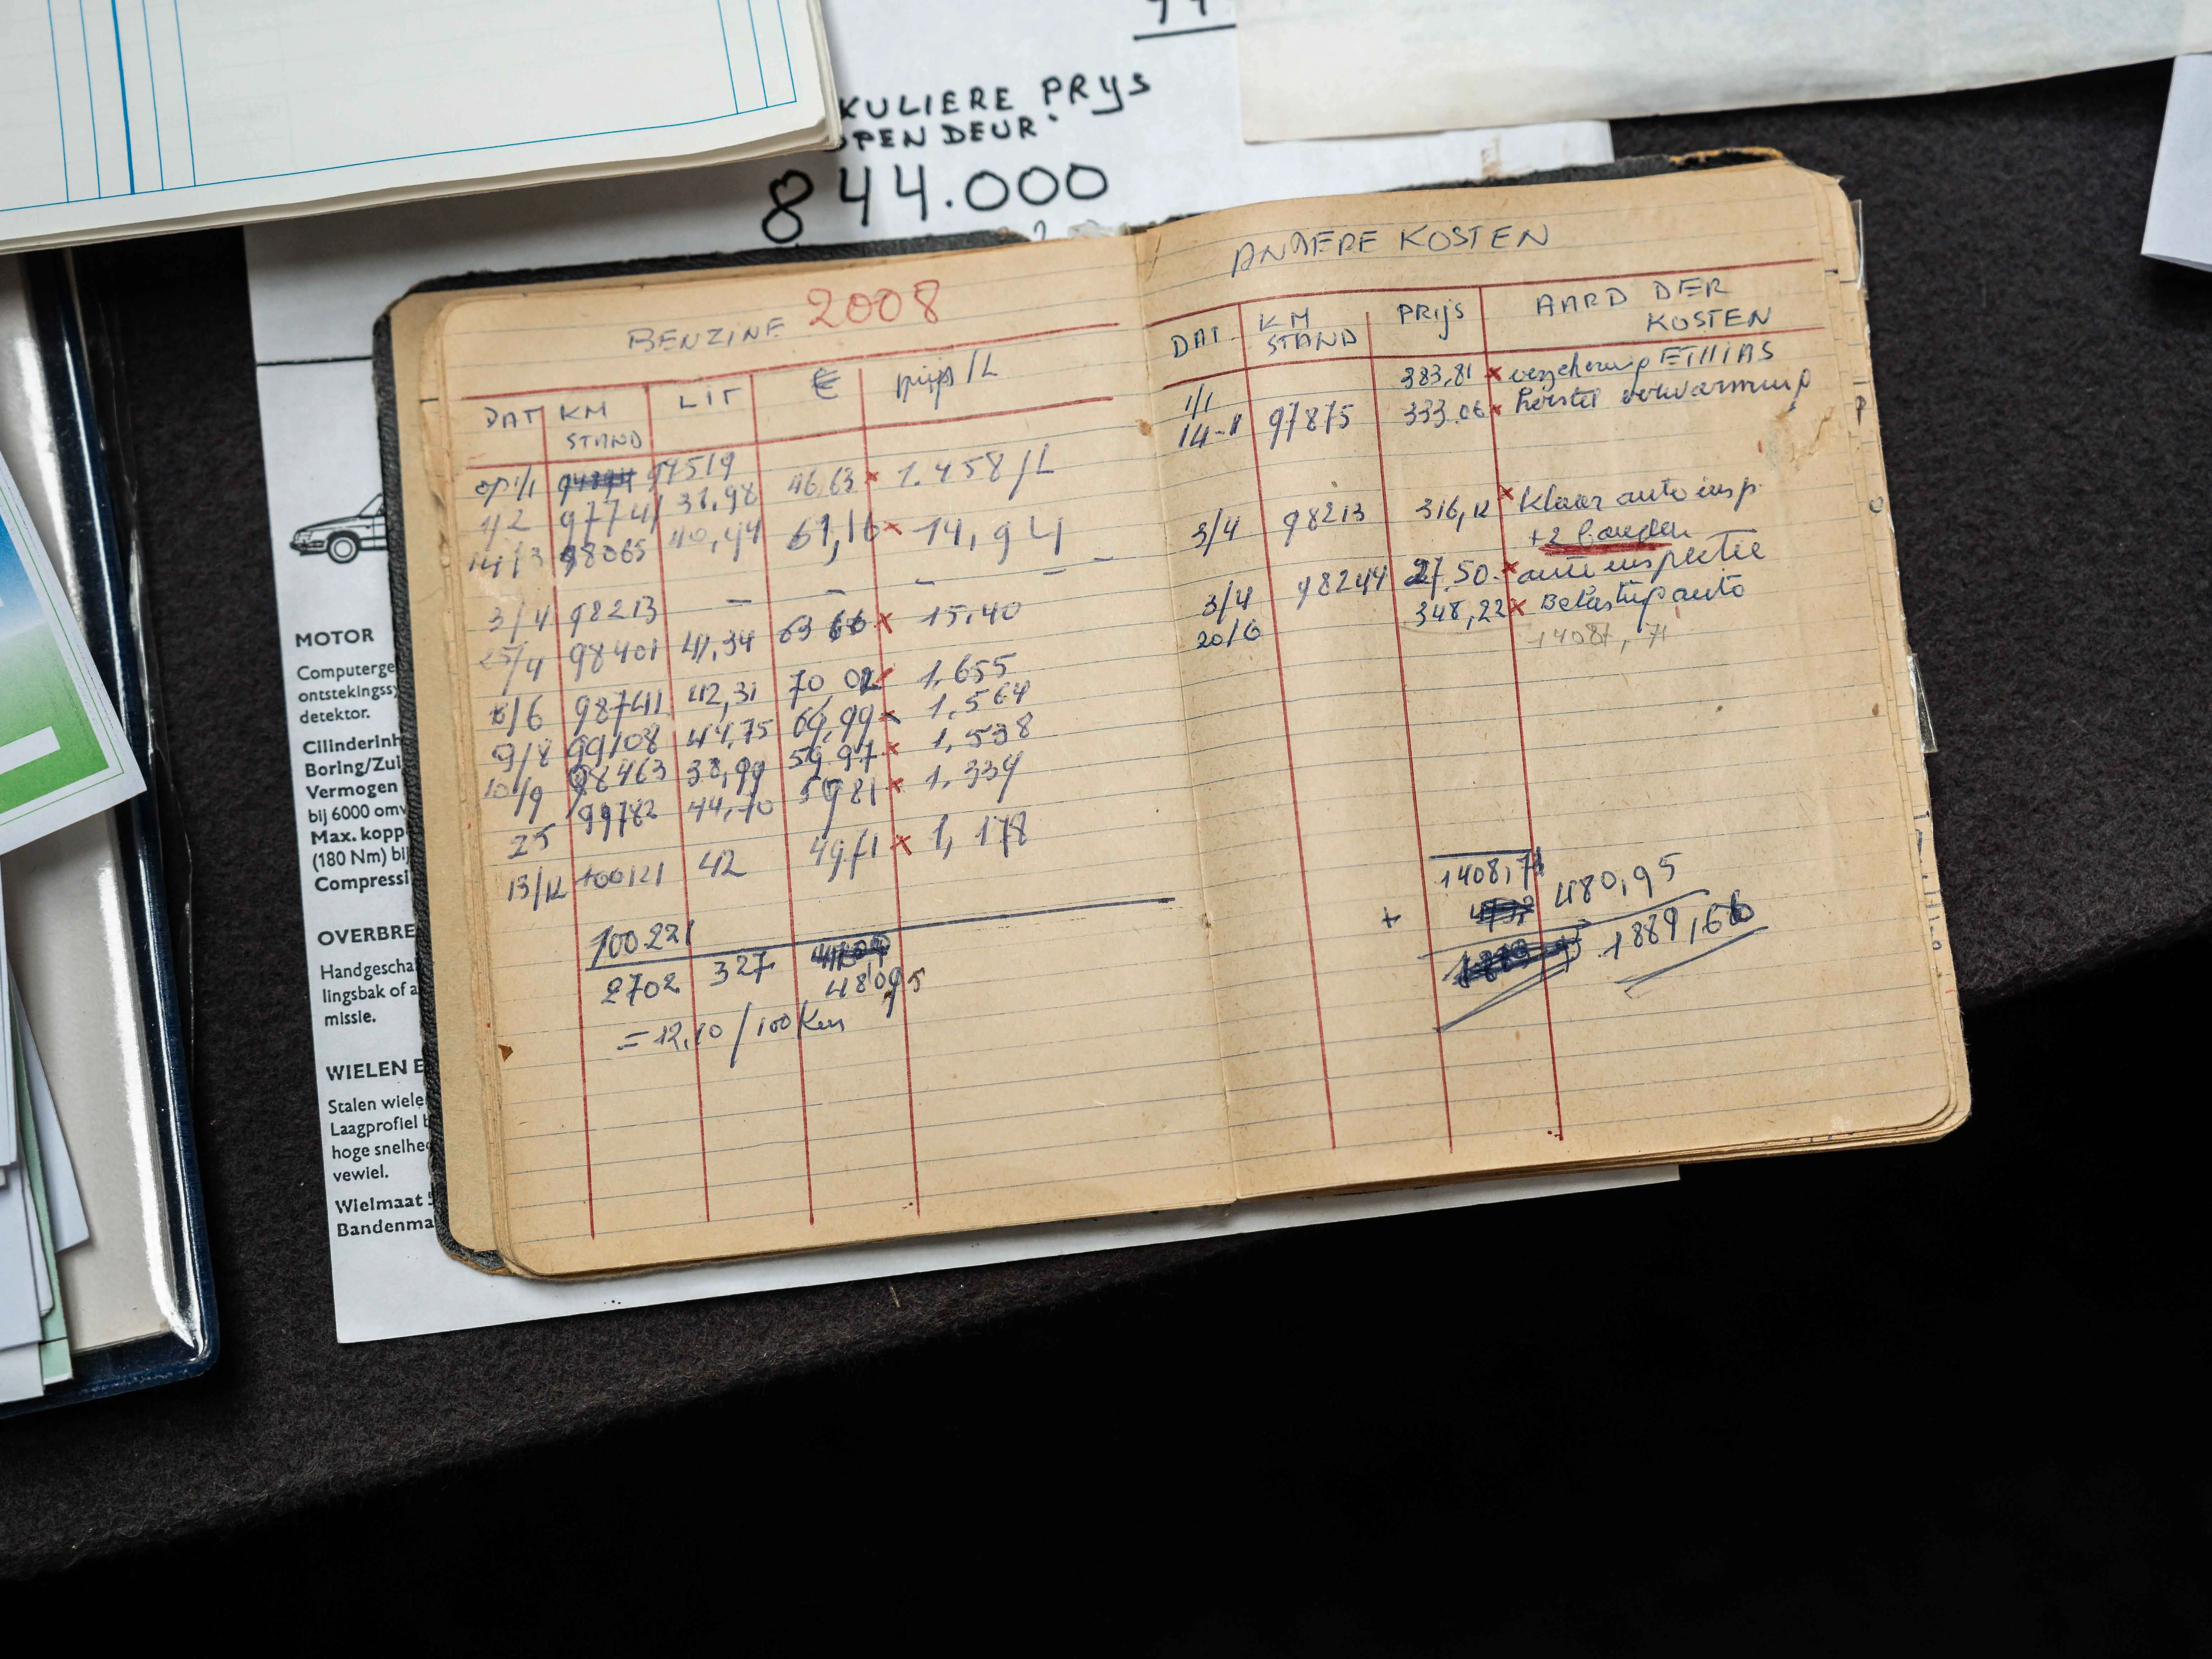 KULIERE PRYS
OPEN DEUR
844.000
BENZINE 2008
DAT KM STAND LIT € prijs/L
op 1/1 97519
1/2 97741 31,98 46,63 × 1.458/L
14/3 98065 40,44 61,16 × 14,94
3/4 98213 — — — — —
25/4 98401 41,34 63 66 × 15,40
98741 42,31 70,02 × 1,655
9/8 99108 44,75 69,99 × 1,564
10/9 38,99 59,97 × 1,538
25 99782 44,70 5981 × 1.339
13/12 100121 42 49,71 × 1,178
100.221
2702 327
480,95
=12,10/100 Km
ANDERE KOSTEN
DAT KM STAND PRIJS AARD DER KOSTEN
1/1 383,81 × verzekering ETHIAS
14-1 97875 333.06 × herstel verwarming
3/4 98213 316,12 × klaar auto insp.
+2 banden
3/4 98244 27.50 × auto inspectie
20/6 348,22 × Belasting auto
1408,71
1408,71
+ 480,95
1889,66
MOTOR
Computerge
ontstekingss
detektor.
Cilinderinh
Boring/Zui
Vermogen
bij 6000 omv
Max. kopp
(180 Nm) bij
Compressi
OVERBRE
Handgescha
lingsbak of a
missie.
WIELEN E
Stalen wiele
Laagprofiel b
hoge snelhe
vewiel.
Wielmaat 5
Bandenma